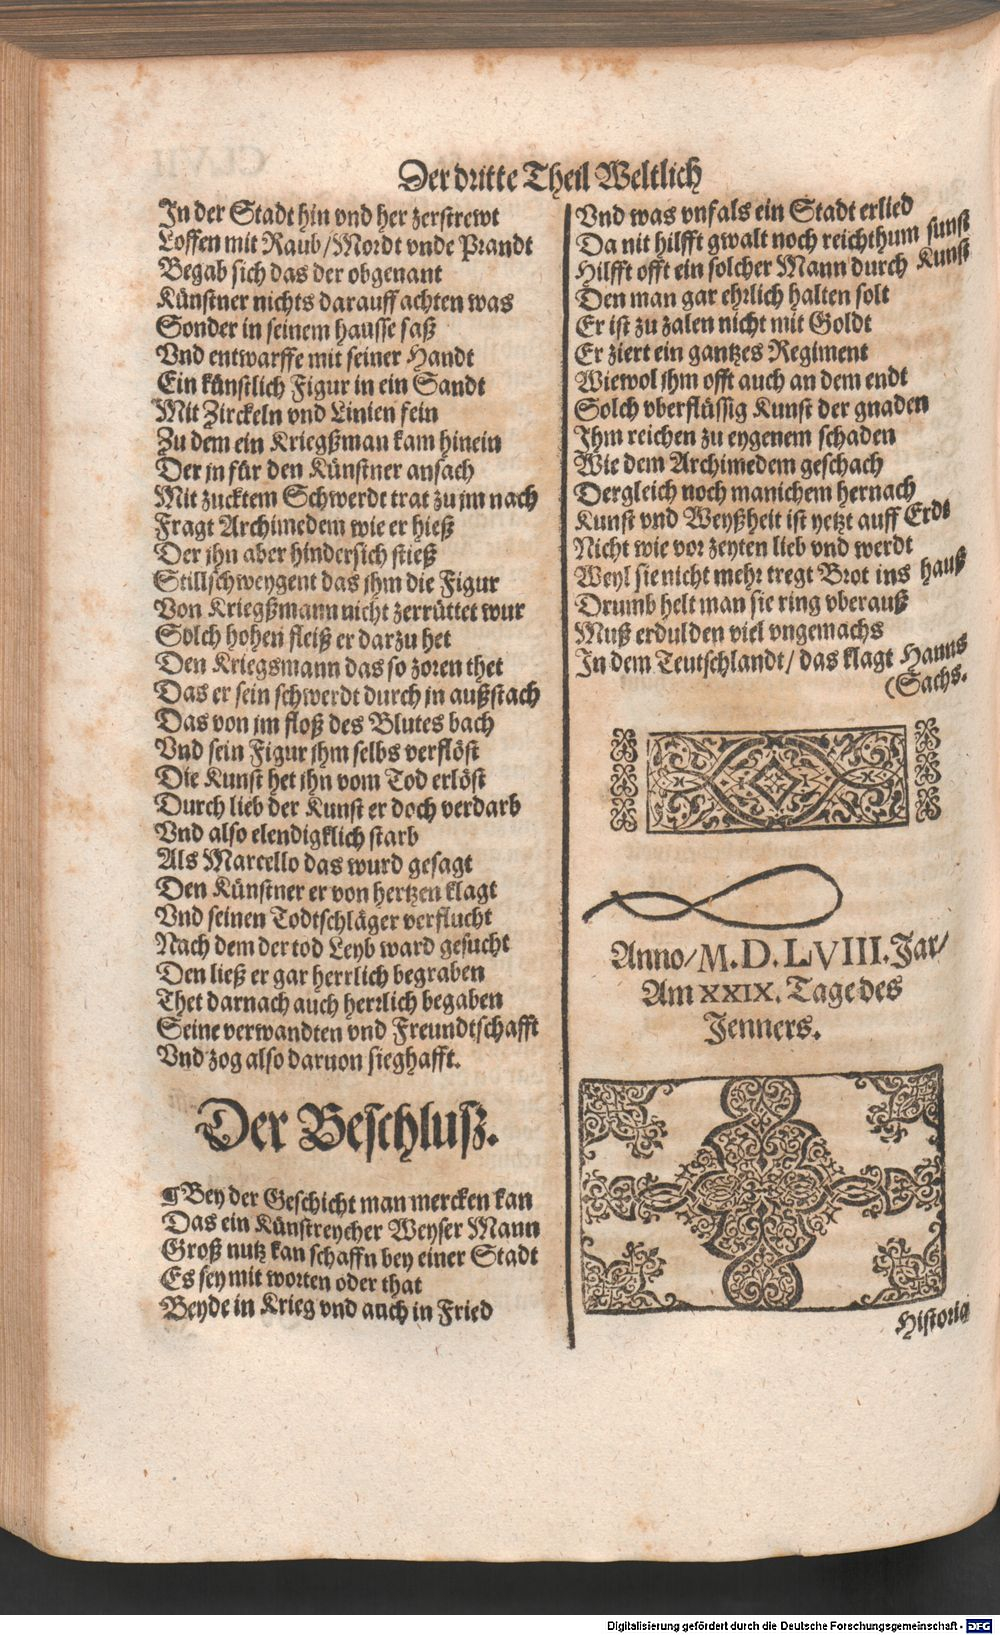 Der dritte Theil Weltlich
In der Stadt hin vnd her zerstrewt
Loffen mit Raub/Mordt vnde Prandt
Begab sich das der obgenant
Künstner nichts darauff achten was
Sonder in seinem hausse saß
Vnd entwarffe mit seiner Handt
Ein künstlich Figur in ein Sandt
Mit Zirckeln vnd Linien fein
Zu dem ein Kriegßman kam hinein
Der jn für den Künstner ansach
Mit zucktem Schwerdt trat zu jm nach
Fragt Archimedem wie er hieß
Der jhn aber hindersich stieß
Stillschweygent das jhm die Figur
Von Kriegßmann nicht zerrüttet wur
Solch hohen fleiß er darzu het
Den Kriegsmann das so zoren thet
Das er sein schwerdt durch jn außstach
Das von jm floß des Blutes bach
Vnd sein Figur jhm selbs verflöst
Die Kunst het jhn vom Tod erlöst
Durch lieb der Kunst er doch verdarb
Vnd also elendigklich starb
Als Marcello das wurd gesagt
Den Künstner er von hertzen klagt
Vnd seinen Todtschläger verflucht
Nach dem der tod Leyb ward gesucht
Den ließ er gar herrlich begraben
Thet darnach auch hertzlich begaben
Seine verwandten vnd Freundtschafft
Vnd zog also daruon sieghafft.
Der Beschlusz.
¶Bey der Geschicht man mercken kan
Das ein Künstreycher Weyser Mann
Groß nutz kan schaffn bey einer Stadt
Es sey mit worten oder that
Beyde in Krieg vnd auch in Fried
Vnd was vnfals ein Stadt erlied
Da nit hilfft gwalt noch reichthum sunst
Hilfft offt ein solcher Mann durch Kunst
Den man gar ehrlich halten solt
Er ist zu zalen nicht mit Goldt
Er ziert ein gantzes Regiment
Wiewol jhm offt auch an dem endt
Solch vberflüssig Kunst der gnaden
Ihm reichen zu eygenem schaden
Wie dem Archimedem geschach
Dergleich noch manichem hernach
Kunst vnd Weyßheit ist yetzt auff Erdt
Nicht wie vor zeyten lieb vnd werdt
Weyl sie nicht mehr tregt Brot ins hauß
Drumb helt man sie ring vberauß
Muß erdulden viel vngemachs
In dem Teutschlandt/ das klagt Hanns
(Sachs.
Anno/M.D.LVIII.Jar/
Am XXIX. Tage des
Jenners.
Historia
Digitalisierung gefördert durch die Deutsche Forschungsgemeinschaft - DFG